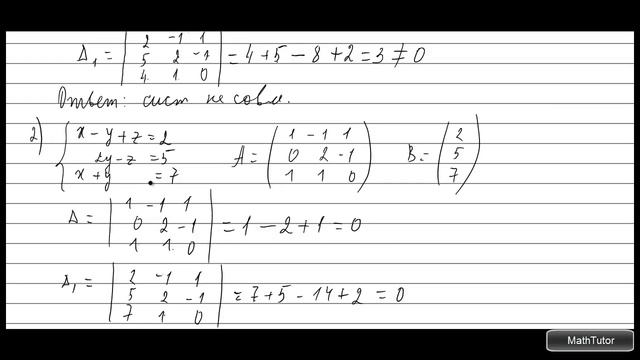 Δ₁ = | 2 -1 1 |
| 5 2 -1 | = 4 + 5 - 8 + 2 = 3 ≠ 0
| 4 1 0 |
Ответ: сист не совм.
2) { x - y + z = 2
2y - z = 5
x + y = 7
A = ( 1 -1 1 )
( 0 2 -1 )
( 1 1 0 )
B = ( 2 )
( 5 )
( 7 )
Δ = | 1 -1 1 |
| 0 2 -1 | = 1 - 2 + 1 = 0
| 1 1 0 |
Δ₁ = | 2 -1 1 |
| 5 2 -1 | = 7 + 5 - 14 + 2 = 0
| 7 1 0 |
MathTutor